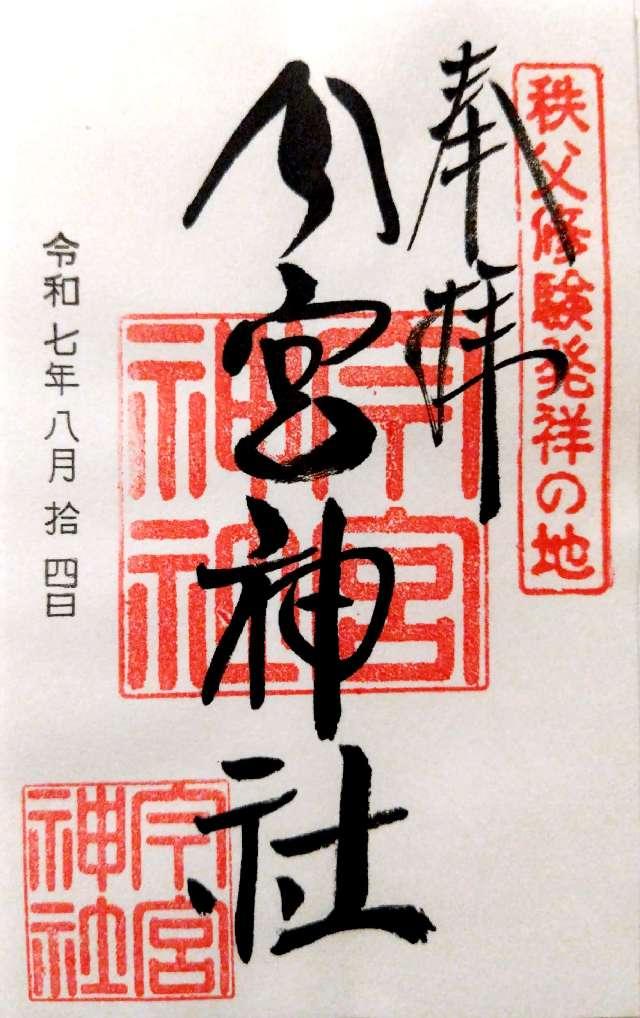 秩父修験発祥の地
奉拝
今宮神社
今宮神社
令和七年八月拾四日
今宮神社